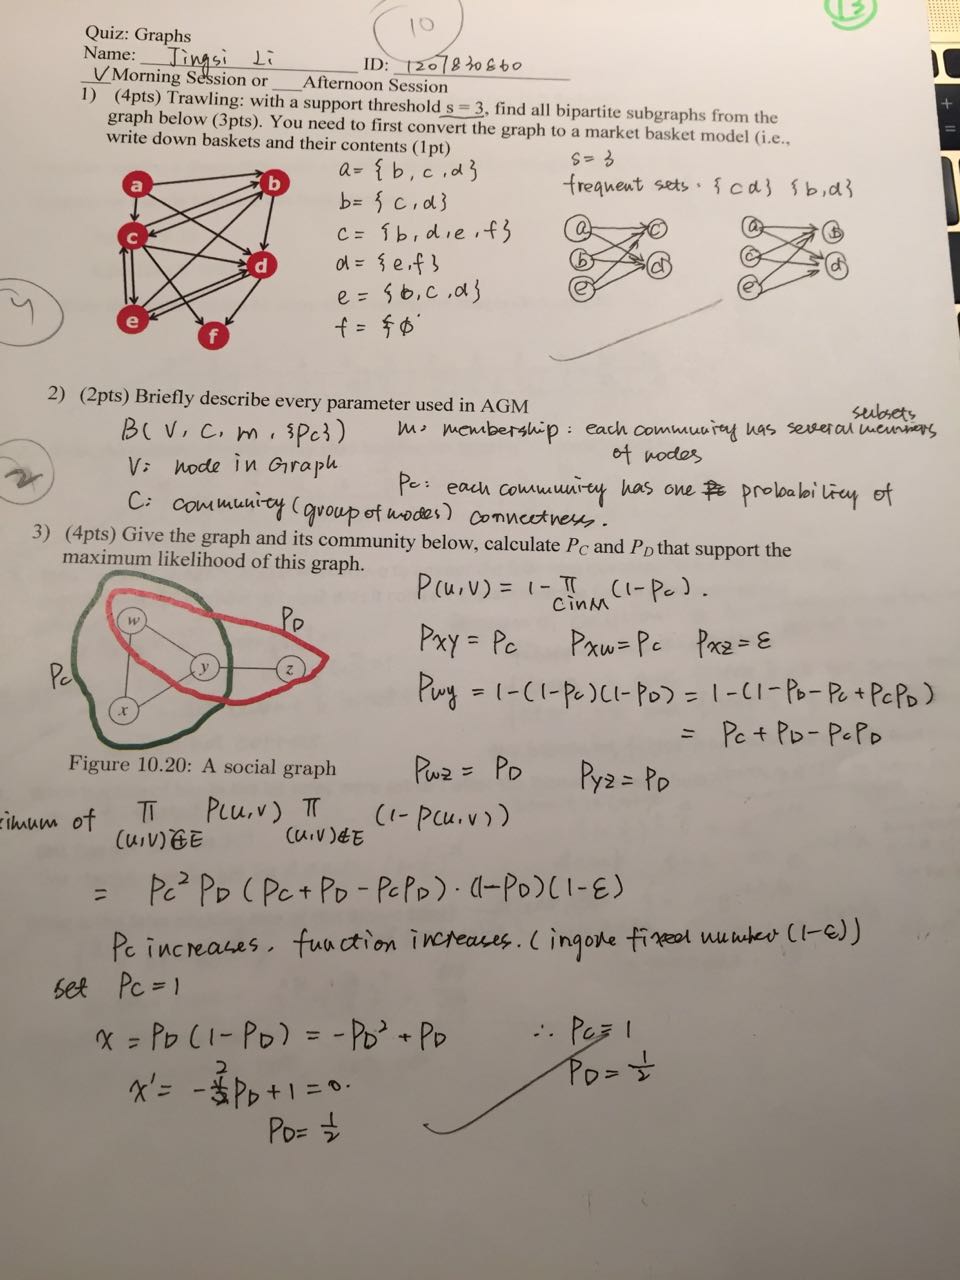 13
10
Quiz: Graphs
Name: Jingsi Li ID: 1207830860
√ Morning Session or ___ Afternoon Session
1) (4pts) Trawling: with a support threshold s = 3, find all bipartite subgraphs from the
graph below (3pts). You need to first convert the graph to a market basket model (i.e.,
write down baskets and their contents (1pt)
a b c d e f
a = { b, c, d }
b = { c, d }
c = { b, d, e, f }
d = { e, f }
e = { b, c, d }
f = { ϕ
s = 3
frequent sets. { c d } { b, d }
a b e c d
a c e b d
4
2) (2pts) Briefly describe every parameter used in AGM
B( V, C, M, {Pc} )
V: node in Graph
C: community (group of nodes)
M: membership: each community has several subsets
of nodes
Pc: each community has one probability of
connectness.
2
3) (4pts) Give the graph and its community below, calculate PC and PD that support the
maximum likelihood of this graph.
w y z x
Pc PD
Figure 10.20: A social graph
P(u,v) = 1 - π (1-Pc).
C in M
Pxy = Pc Pxw = Pc Pxz = ε
Pwy = 1-(1-Pc)(1-PD) = 1-(1-PD-Pc+PcPD)
= Pc + PD - PcPD
Pwz = PD Pyz = PD
imum of π P(u,v) π (1-P(u,v))
(u,v)∈E (u,v)∉E
= Pc² PD (Pc + PD - PcPD) · (1-PD)(1-ε)
Pc increases, function increases. (ingore fixed number (1-ε))
set Pc = 1
x = PD (1-PD) = -PD² + PD
x' = -2PD + 1 = 0.
PD = 1/2
∴ Pc = 1
PD = 1/2